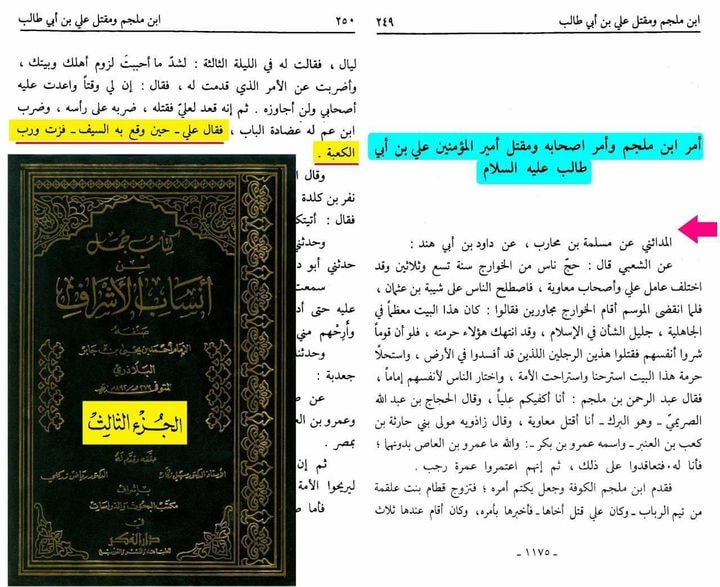 ابن ملجم ومقتل علي بن أبي طالب
٢٤٩
أمر ابن ملجم وأمر اصحابه ومقتل أمير المؤمنين علي بن أبي
طالب عليه السلام
المدائني عن مسلمة بن محارب ، عن داود بن أبي هند :
عن الشعبي قال : حجّ ناس من الخوارج سنة تسع وثلاثين وقد
اختلف عامل علي وأصحاب معاوية ، فاصطلح الناس على شيبة بن عثمان ،
فلما انقضى الموسم أقام الخوارج مجاورين فقالوا : كان هذا البيت معظماً في
الجاهلية ، جليل الشأن في الإسلام ، وقد انتهك هؤلاء حرمته ، فلو أن قوماً
شروا أنفسهم فقتلوا هذين الرجلين اللذين قد أفسدوا في الأرض ، واستحلّا
حرمة هذا البيت استرحنا واستراحت الأمة ، واختار الناس لأنفسهم إماماً ،
فقال عبد الرحمن بن ملجم : أنا أكفيكم علياً ، وقال الحجاج بن عبد الله
الصريميّ ـ وهو البرك ـ أنا أقتل معاوية ، وقال زاذويه مولى بني حارثة بن
كعب بن العنبر ـ واسمه عمرو بن بكر ـ : والله ما عمرو بن العاص بدونهما ؛
فأنا له . فتعاقدوا على ذلك ، ثم إنهم اعتمروا عمرة رجب .
فقدم ابن ملجم الكوفة وجعل يكتم أمره ؛ فتزوج قطام بنت علقمة
من تيم الرباب ـ وكان علي قتل أخاها ـ فأخبرها بأمره ، وكان أقام عندها ثلاث
ـ ١١٧٥ ـ
٢٥٠
ابن ملجم ومقتل علي بن أبي طالب
ليال ، فقالت له في الليلة الثالثة : لشدّ ما أحببتَ لزوم أهلك وبيتك ،
وأضربت عن الأمر الذي قدمت له ، فقال : إن لي وقتاً واعدت عليه
أصحابي ولن أجاوزه . ثم إنه قعد لعليّ فقتله ، ضربه على رأسه ، وضرب
ابن عم له عضادة الباب ، فقال علي ـ حين وقع به السيف ـ فزت ورب
الكعبة .
وقال ا
نفر بن كلدة
فقال : أتيتك
وحدثني
حدثني أبو د
سمعت
عليه حتى أد
وأَرِحْهم مني
وحدثنا
جعدبة :
عن ص
وعمرو بن ال
بمصر .
ثم إن
ليريحوا الأمة
فأما ص
كتاب جمل
من
أنساب الأشراف
صنفه
الإمام أحمد بن يحيى بن جابر
البلاذري
المتوفى
الجزء الثالث
حققه وقدم له
الأستاذ الدكتور سهيل زكار
الدكتور رياض زركلي
بإشراف
مكتب البحوث والدراسات
في
دار الفكر
للطباعة والنشر والتوزيع